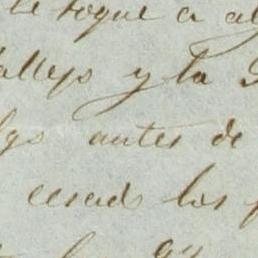 le toque a al
allejo y la
lgo antes de
cesado los